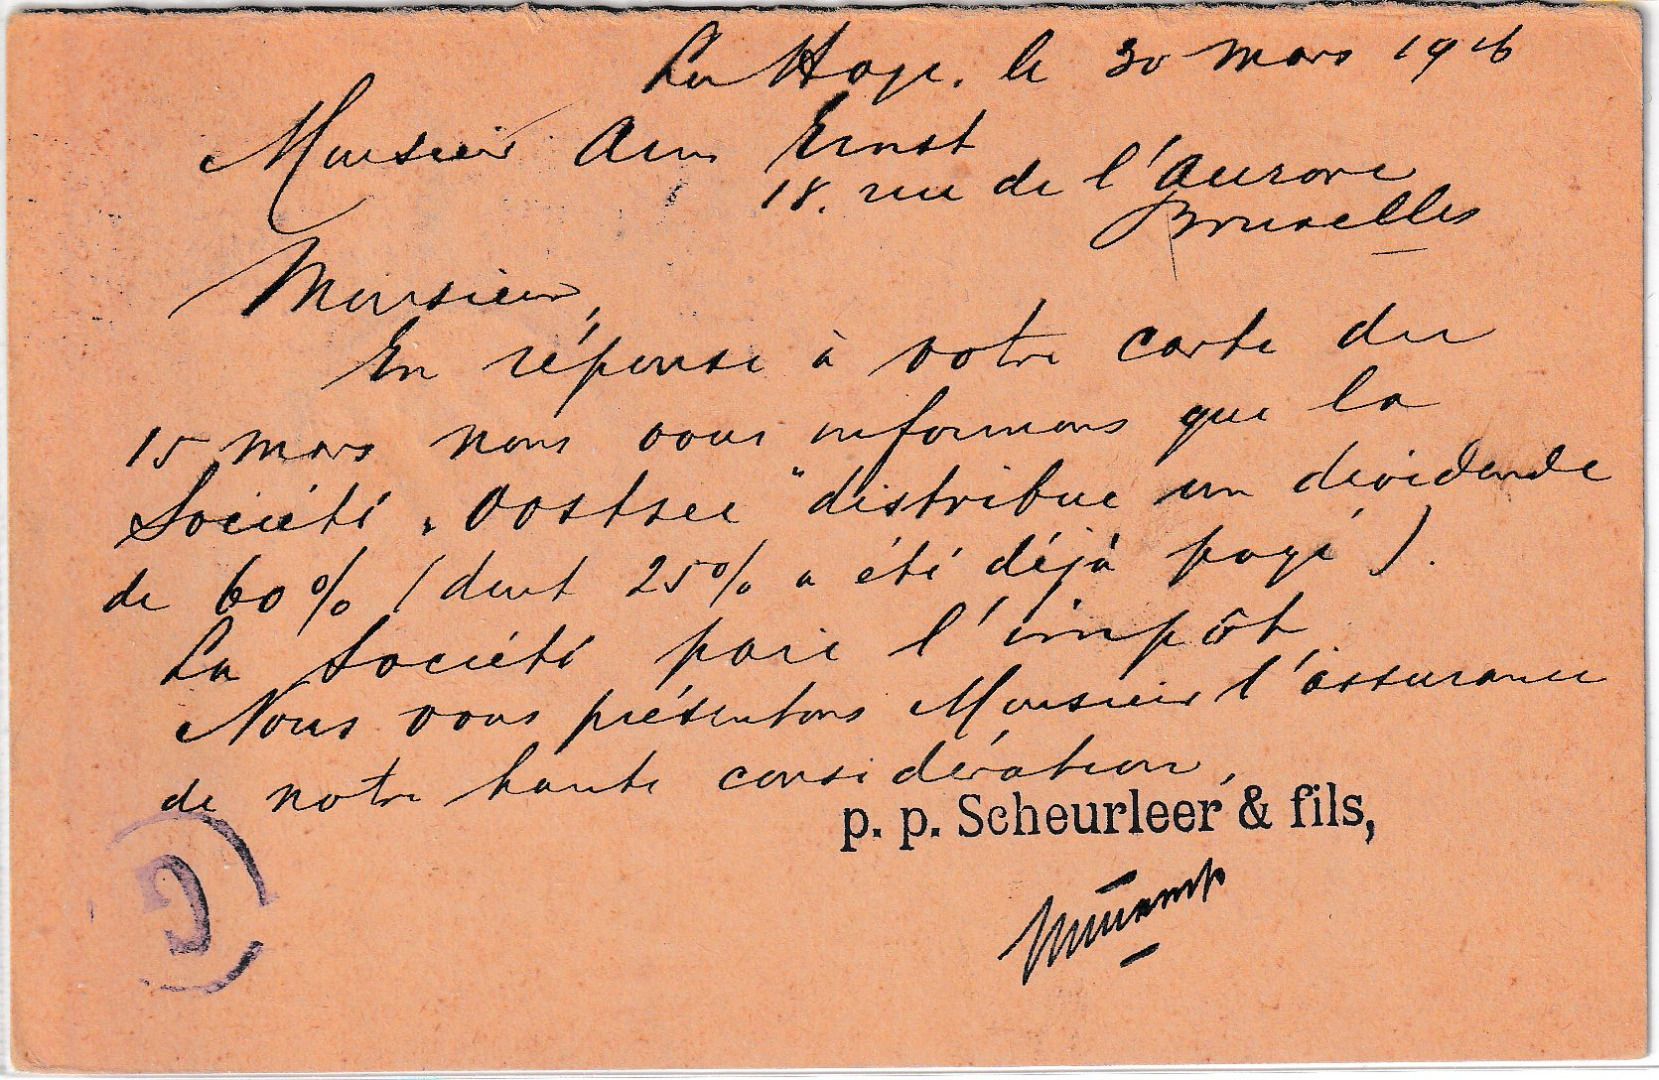 La Haye, le 30 mars 1916
Monsieur Ernst
18. rue de l'Aurore
Bruxelles
Monsieur,
En réponse à votre carte du
15 mars nous vous informons que la
Société „Oostsee“ distribue un dividende
de 60% (dont 25% a été déjà payé).
La Société paie l'impôt
Nous vous présentons Monsieur l'assurance
de notre haute considération,
p. p. Scheurleer & fils,